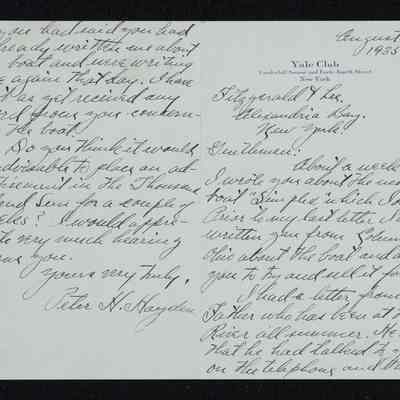 August
1935
Yale Club
Vanderbilt Avenue and Forty-fourth Street
New York
Fitzgerald & Lee,
Alexandria Bay,
New York.
Gentlemen:
About a week
I wrote you about the
boat "Simplex" which I
Prior to my last letter I
written you from
Ohio about the boat and
you to try and sell it for
I had a letter from
Father who has been at
River all summer. He
that he had talked to
on the telephone and
you had said you had
already written me about
boat and were writing
again that day. I have
as yet received any
word from you concern-
the boat.
Do you think it would
advisable to place an ad-
in the Thousand
Sun for a couple of
? I would appre-
very much hearing
you.
Yours very truly,
Peter H. Hayden